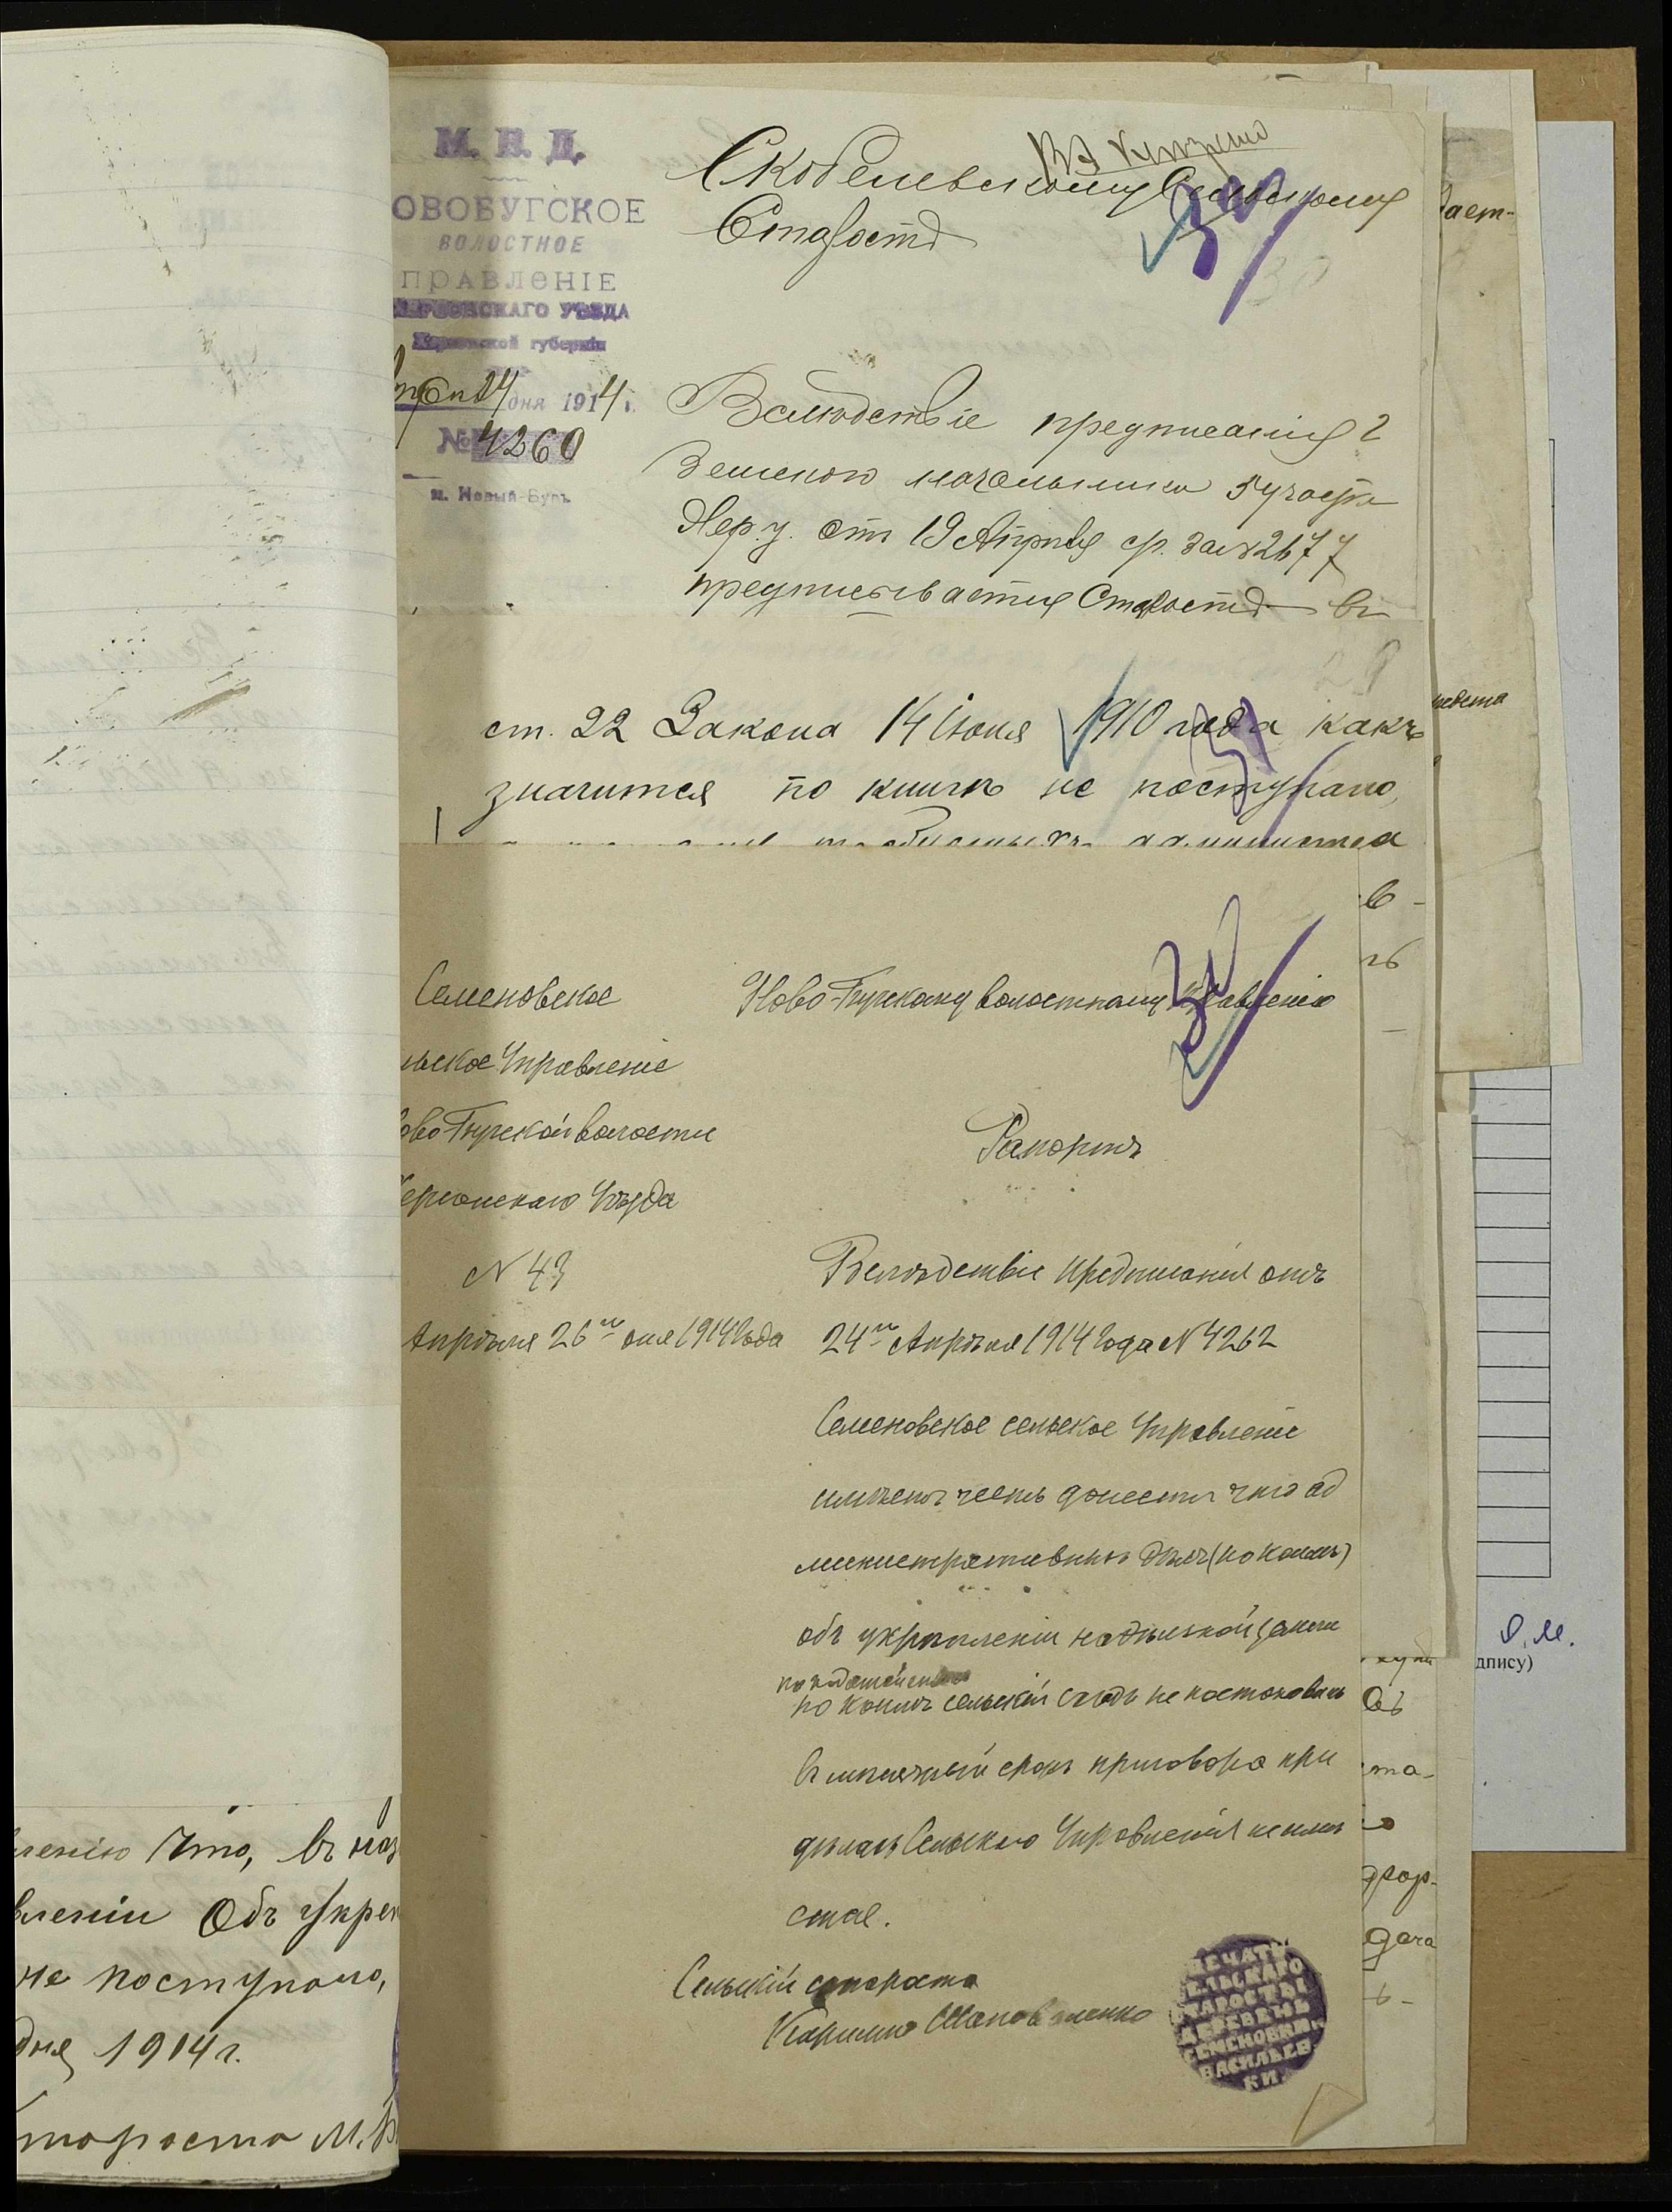 М. В. Д.
ОВОБУГСКОЕ
ВОЛОСТНОЕ
ПРАВЛЕНІЕ
УѢЗДА
губерніи
24 дня 1914 г.
№ 4260
м. Новый-Бугъ.
Скобелевскому Сельскому
Старостѣ
30
Вслѣдствіе предписанія г
Земскаго начальника 5 участка
Хер. у. отъ 19 Апрѣля с/г. за № 2677
предписывается Старостѣ въ
ст. 22 Закона 14 іюня 1910 года какъ
значится по книгѣ не поступало,
Семеновское
льское Управленіе
ово-Бугской волости
Херсонскаго Уѣзда
№ 43
Апрѣля 26го дня 1914 года
Ново-Бугскому волостному Правленію
Рапортъ
Вслѣдствіе предписанія отъ
24го Апрѣля 1914 года № 4262
Семеновское сельское Управленіе
имѣетъ честь донести что ад
министративныхъ дѣлъ (по коимъ)
объ укрѣпленіи надѣльной земли
по коимъ сельскій сходъ не постановилъ
въ мѣсячный срокъ приговора при
дѣлахъ Сельскаго Управленія не имѣ
ется.
Сельскій староста
Шаповаленко
ПЕЧАТЬ
СЕЛЬСКАГО
СТАРОСТЫ
ДЕРЕВЬНЬ
СЕМЕНОВКИ
ВАСИЛЬЕВ
КИ
ленію что, въ наз
вленіи Объ укреп
не поступало,
дня 1914 г.
тароста М.
дает-
в -
гь
та-
дача
дпису)